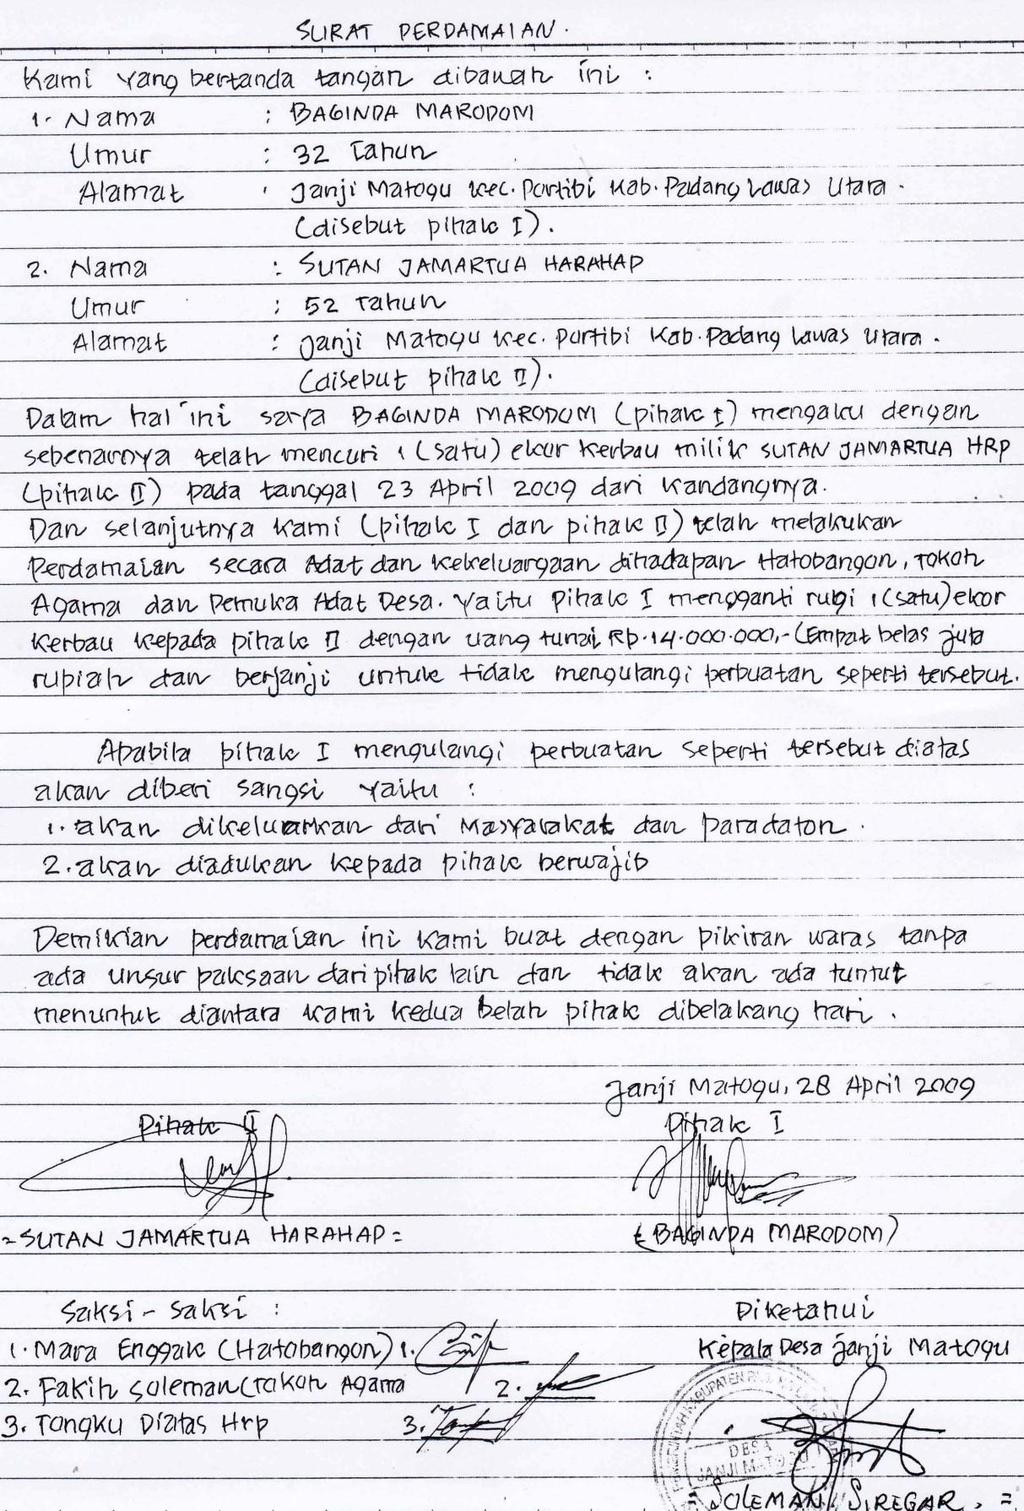 SURAT PERDAMAIAN.
Kami yang bertanda tangan dibawah ini :
1. Nama : BAGINDA MARODOM
Umur : 32 Tahun
Alamat : Janji Matogu Kec. Portibi Kab. Padang Lawas Utara.
(disebut pihak I).
2. Nama : SUTAN JAMARTUA HARAHAP
Umur : 52 Tahun
Alamat : Janji Matogu Kec. Portibi Kab. Padang Lawas Utara.
(disebut pihak II).
Dalam hal ini saya BAGINDA MARODOM (pihak I) mengaku dengan
sebenarnya telah mencuri 1 (satu) ekor kerbau milik SUTAN JAMARTUA HRP
(pihak II) pada tanggal 23 April 2009 dari kandangnya.
Dan selanjutnya kami (pihak I dan pihak II) telah melakukan
Perdamaian secara Adat dan kekeluargaan dihadapan Hatobangon, Tokoh
Agama dan Pemuka Adat Desa. Yaitu Pihak I mengganti rugi 1(satu) ekor
kerbau kepada pihak II dengan uang tunai Rp.14.000.000,- (Empat belas juta
rupiah dan berjanji untuk tidak mengulangi perbuatan seperti tersebut.
Apabila pihak I mengulangi perbuatan seperti tersebut diatas
akan diberi sangsi yaitu :
1. akan dikeluarkan dari Masyarakat dan paradaton.
2. akan diadukan kepada pihak berwajib
Demikian perdamaian ini kami buat dengan pikiran waras tanpa
ada unsur paksaan dari pihak lain dan tidak akan ada tuntut
menuntut diantara kami kedua belah pihak dibelakang hari.
Janji Matogu, 28 April 2009
Pihak II Pihak I
= SUTAN JAMARTUA HARAHAP = (BAGINDA MARODOM)
Saksi - saksi : Diketahui
1. Mara Enggak (Hatobangon) 1. Kepala Desa Janji Matogu
2. Fakih Soleman (Tokoh Agama 2.
3. Tongku Diatas Hrp 3.
DESA
JANJI MATOGU
= SOLEMAN SIREGAR. =